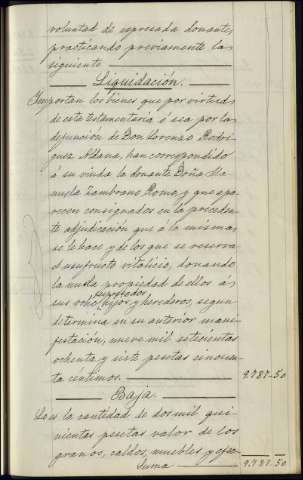 voluntad de espresada donante,
practicando previamente la
siguiente
Liquidación.
Importan los bienes que por virtud
de esta testamentaria ó sea por la
defunción de Don Lorenzo Rodri-
guez Aldana, han correspondido
á su viuda la donante Doña Ma-
nuela Zambrano Romo, y que apa-
recen consignados en la preceden-
te adjudicación que á la misma
se le hace y de los que se reserva
el usufructo vitalicio, donando
la nuda propiedad de ellos á
sus ocho, espresados, hijos y herederos, segun
determina en su anterior mani-
festación, nueve mil setecientas
ochenta y siete pesetas cincuen-
ta céntimos. 9.787-50
Baja.
Lo es la cantidad de dos mil qui-
nientas pesetas valor de los
granos, caldos, muebles y efec-
Suma 9.787-50